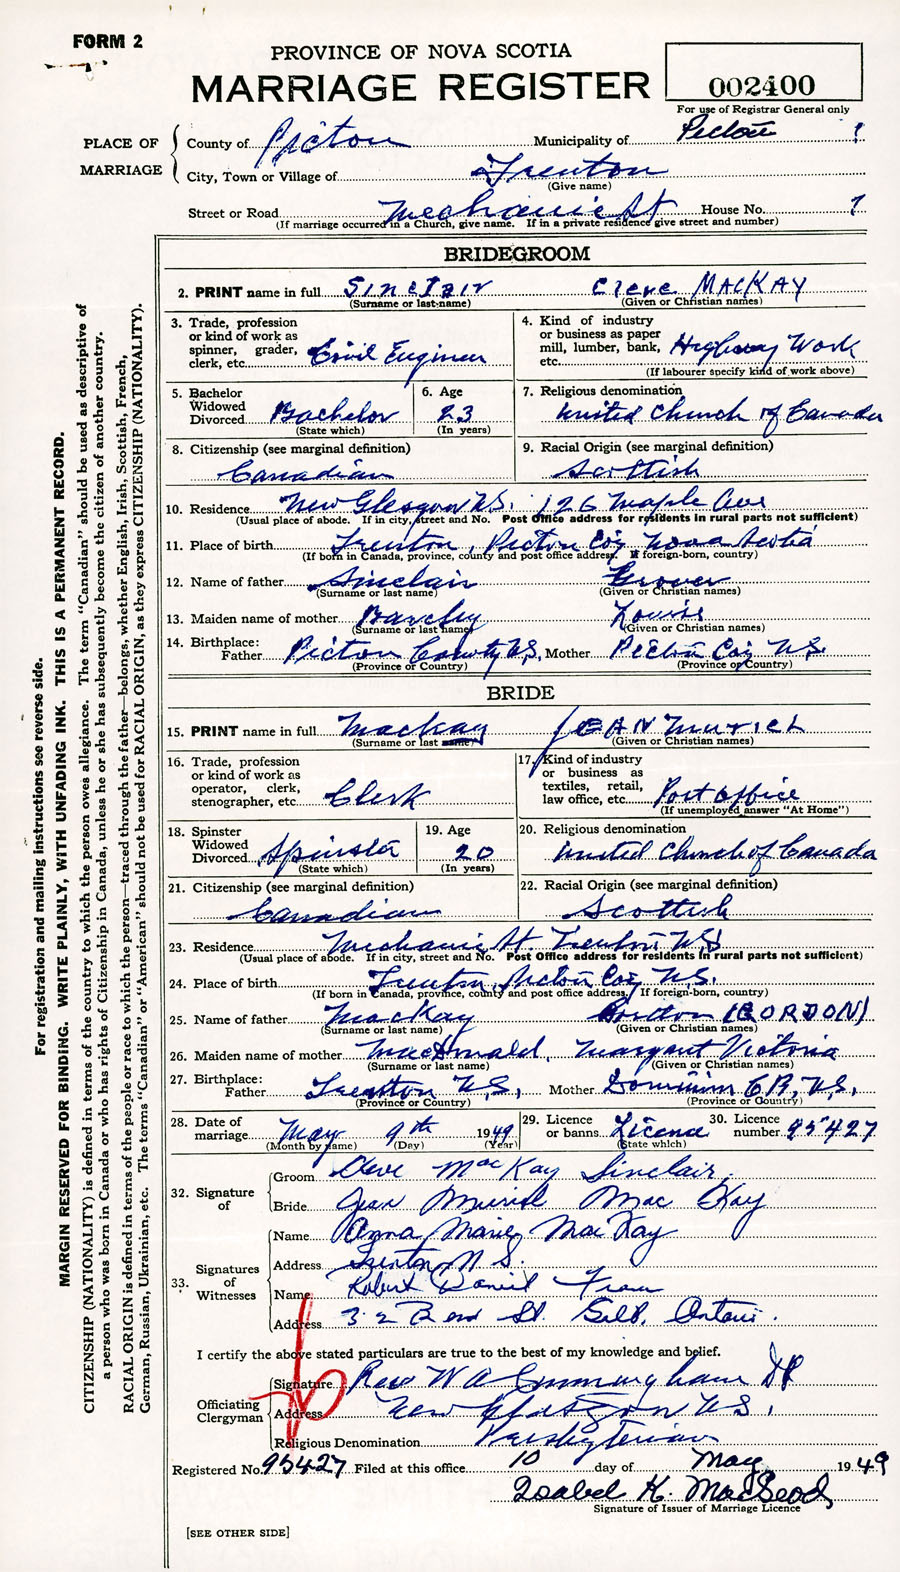 FORM 2
PROVINCE OF NOVA SCOTIA
MARRIAGE REGISTER
002400
For use of Registrar General only
PLACE OF MARRIAGE
County of Pictou Municipality of Pictou ?
City, Town or Village of Trenton
(Give name)
Street or Road Mechanic St House No. ?
(If marriage occurred in a Church, give name. If in a private residence give street and number)
BRIDEGROOM
2. PRINT name in full Sinclair Cleve MacKay
(Surname or last name) (Given or Christian names)
3. Trade, profession or kind of work as spinner, grader, clerk, etc. Civil Engineer
4. Kind of industry or business as paper mill, lumber, bank, etc. Highway Work
(If labourer specify kind of work above)
5. Bachelor Widowed Divorced Bachelor
(State which)
6. Age 23
(In years)
7. Religious denomination United Church of Canada
8. Citizenship (see marginal definition) Canadian
9. Racial Origin (see marginal definition) Scottish
10. Residence New Glasgow N.S. 126 Maple Ave
(Usual place of abode. If in city, street and No. Post Office address for residents in rural parts not sufficient)
11. Place of birth Trenton, Pictou Co, Nova Scotia
(If born in Canada, province, county and post office address. If foreign-born, country)
12. Name of father Sinclair Grover
(Surname or last name) (Given or Christian names)
13. Maiden name of mother Louise
(Surname or last name) (Given or Christian names)
14. Birthplace: Father Pictou County N.S. Mother Pictou Co, N.S.
(Province or Country) (Province or Country)
BRIDE
15. PRINT name in full Mackay JEAN Muriel
(Surname or last name) (Given or Christian names)
16. Trade, profession or kind of work as operator, clerk, stenographer, etc. Clerk
17. Kind of industry or business as textiles, retail, law office, etc. Post Office
(If unemployed answer "At Home")
18. Spinster Widowed Divorced Spinster
(State which)
19. Age 20
(In years)
20. Religious denomination United Church of Canada
21. Citizenship (see marginal definition) Canadian
22. Racial Origin (see marginal definition) Scottish
23. Residence Mechanic St. Trenton N.S
(Usual place of abode. If in city, street and No. Post Office address for residents in rural parts not sufficient)
24. Place of birth Trenton, Pictou Co, N.S.
(If born in Canada, province, county and post office address. If foreign-born, country)
25. Name of father MacKay Gordon (GORDON)
(Surname or last name) (Given or Christian names)
26. Maiden name of mother MacDonald, Margaret Victoria
(Surname or last name) (Given or Christian names)
27. Birthplace: Father Trenton N.S. Mother Dominion C.B., N.S.
(Province or Country) (Province or Country)
28. Date of marriage May 9th 1949
(Month by name) (Day) (Year)
29. Licence or banns Licence
(State which)
30. Licence number 95427
32. Signature of
Groom Cleve MacKay Sinclair
Bride Jean Muriel MacKay
33. Signatures of Witnesses
Name Anna Marie MacKay
Address Trenton N.S.
Name Robert Daniel
Address 32 St. Galt, Ontario.
I certify the above stated particulars are true to the best of my knowledge and belief.
Officiating Clergyman
Signature Rev W A Cunningham
Address New Glasgow N.S.
Religious Denomination Presbyterian
Registered No. 95427 Filed at this office 10 day of May 1949
Isabel K. MacLeod
Signature of Issuer of Marriage Licence
[SEE OTHER SIDE]
For registration and mailing instructions see reverse side.
MARGIN RESERVED FOR BINDING. WRITE PLAINLY, WITH UNFADING INK. THIS IS A PERMANENT RECORD.
CITIZENSHIP (NATIONALITY) is defined in terms of the country to which the person owes allegiance. The term "Canadian" should be used as descriptive of
a person who was born in Canada or who has rights of Citizenship in Canada, unless he or she has subsequently become the citizen of another country.
RACIAL ORIGIN is defined in terms of the people or race to which the person—traced through the father—belongs, whether English, Irish, Scottish, French,
German, Russian, Ukrainian, etc. The terms "Canadian" or "American" should not be used for RACIAL ORIGIN, as they express CITIZENSHIP (NATIONALITY).